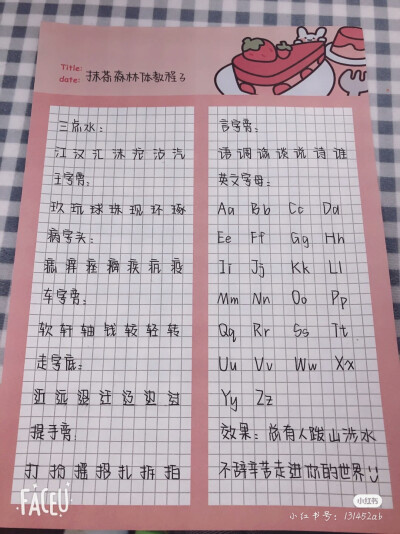 Title:
date: 抹茶森林体教程3
三点水:
江 汉 汇 沫 沱 沽 汽
王字旁:
玖 玩 球 珠 现 环 琢
病字头:
痊 痹 疾 疗 疫
车字旁:
软 轩 轴 钱 较 轻 转
走字底:
近 远 退 迁 迈 边 过
提手旁:
打 拍 摇 招 扎 拆 拍
言字旁:
语 调 诚 谈 说 诗 谁
英文字母:
Aa Bb Cc Dd
Ee Ff Gg Hh
Ii Jj Kk Ll
Mm Nn Oo Pp
Qq Rr Ss Tt
Uu Vv Ww Xx
Yy Zz
效果: 总有人跋山涉水
不辞辛苦走进你的世界
FACEU
小红书
小红书号: 131452ab